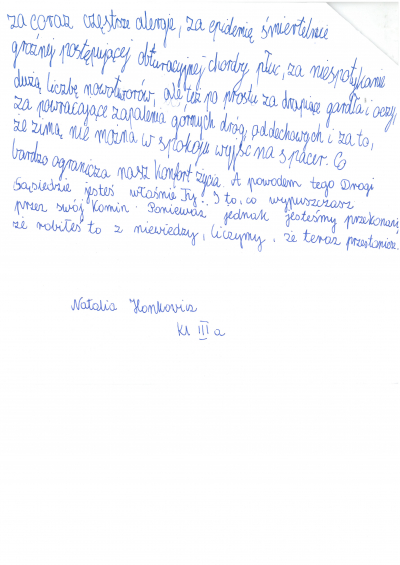 za coraz częstrze alergie, za epidemię śmiertelnie
groźnej postępującej obturacyjnej choroby płuc, za niespotykanie
dużą liczbę nowotworów, ale też po prostu za drapiące gardła i oczy,
za powracające zapalenia górnych dróg oddechowych i za to,
że zimą nie można w spokoju wyjść na spacer. Co
bardzo ogranicza nasz komfort życia. A powodem tego Drogi
Sąsiedzie jesteś właśnie Ty. I to, co wypuszczasz
przez swój komin. Ponieważ jednak jesteśmy przekonani,
że robiłeś to z niewiedzy, liczymy, że teraz przestaniesz.
Natalia
kl III a